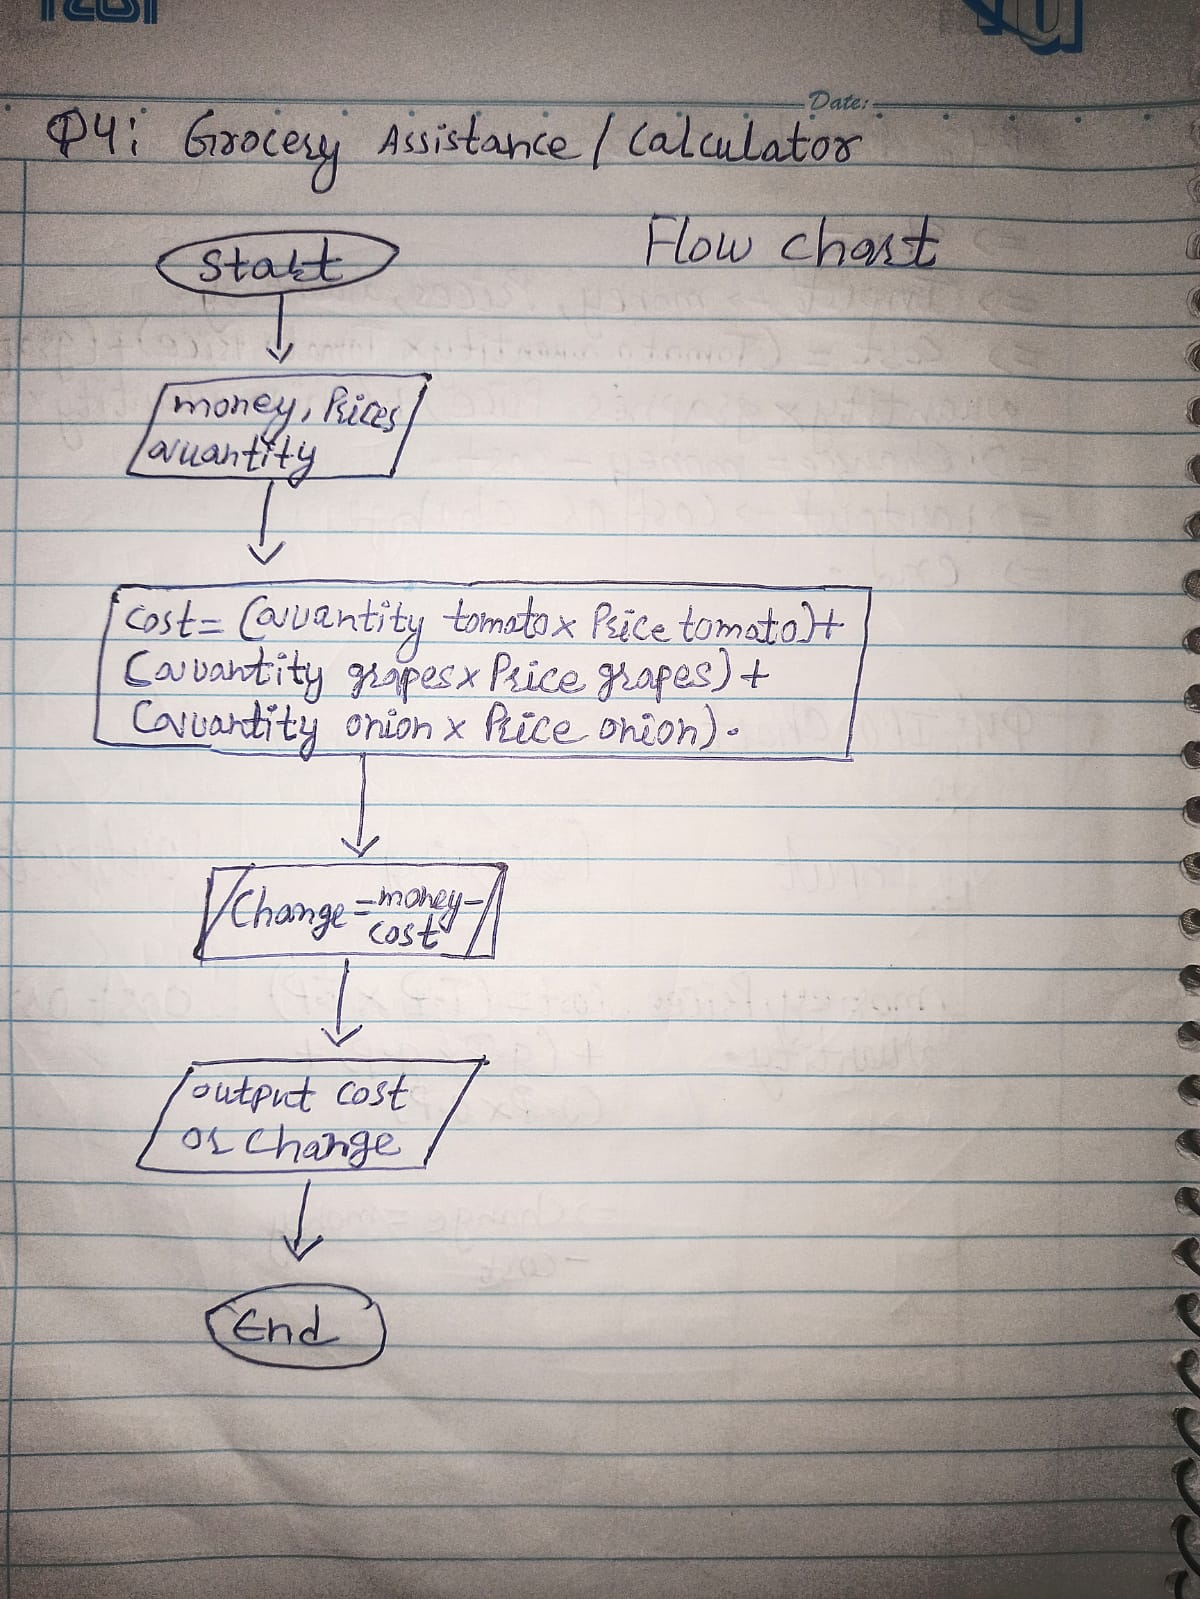 Date:
Q4: Grocery Assistance / Calculator
Flow chart
Start
money, Prices
Quantity
cost= (Quantity tomato x Price tomato)+
(Quantity grapes x Price grapes) +
(Quantity onion x Price onion).
Change = money -
cost
output cost
or change
End